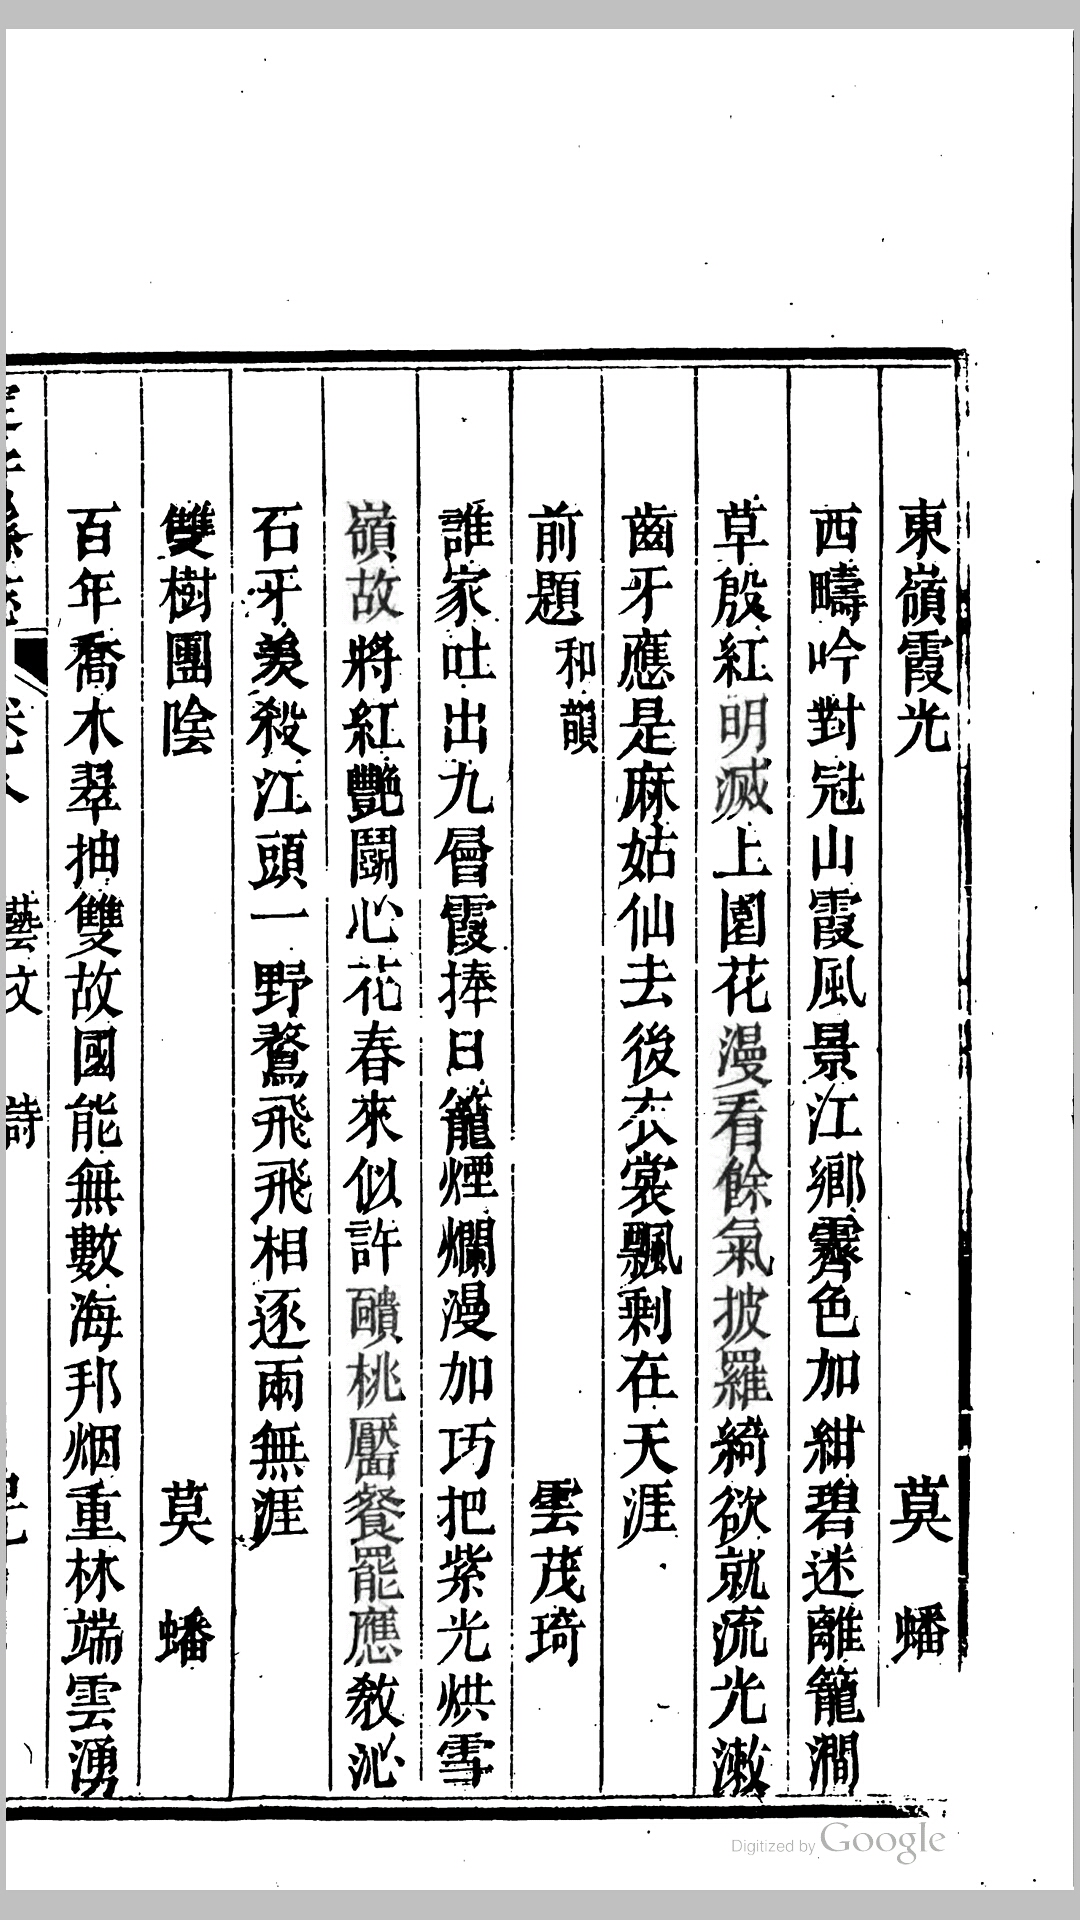 東嶺霞光 莫 蟠
西疇吟對冠山霞風景江鄉霽色加紺碧迷離籠澗
草殷紅明滅上園花漫看餘氣披羅綺欲就流光漱
齒牙應是麻姑仙去後衣裳飄剩在天涯
前題 和韻 雲茂琦
誰家吐出九層霞捧日籠煙爛漫加巧把紫光烘雪
嶺故將紅艷鬪心花春來似許醻桃靨餐罷應教沁
石牙羨殺江頭一野鶩飛飛相逐兩無涯
雙樹團陰 莫 蟠
百年喬木翠抽雙故國能無數海邦烟重林端雲湧
藝文 詩
Digitized by Google